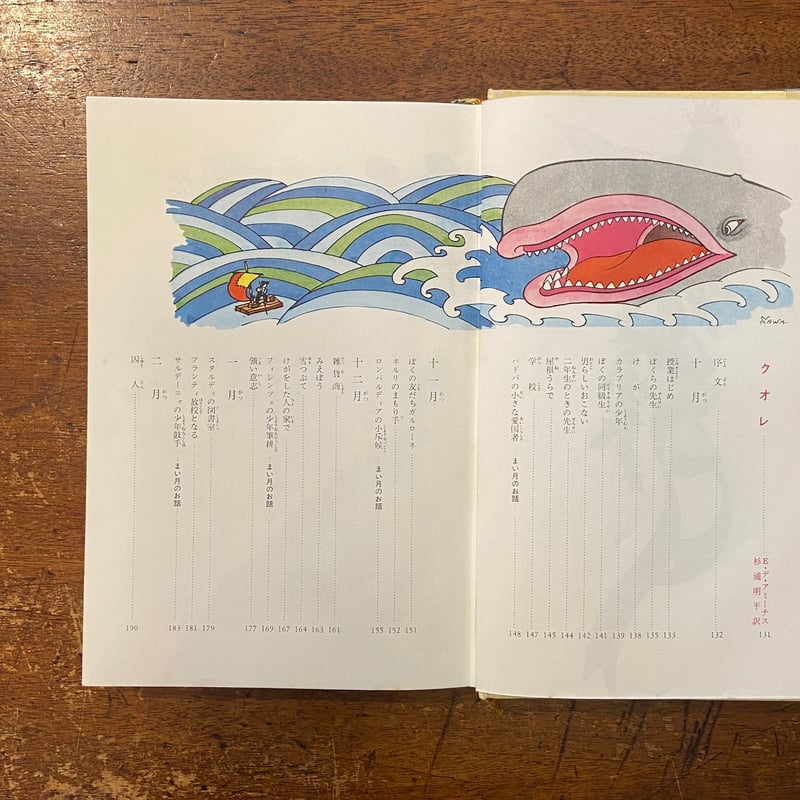 クオレ……131
E・デ・アミーチス
杉浦明平訳
序文……132
十月
授業はじめ……133
ぼくらの先生……135
けが……138
カラブリアの少年……139
ぼくの同級生……141
男らしいおこない……142
二年生のときの先生……144
屋根うらで……145
学校……147
パドバの小さな愛国者 —まい月のお話—……148
十一月
ぼくの友だちガルローネ……151
ネルリのまもり手……152
ロンバルディアの小斥候 —まい月のお話—……155
十二月
雑貨商……161
みえぼう……163
雪つぶて……164
けがをした人の家で……167
フィレンツェの少年筆耕 —まい月のお話—……169
強い意志……177
一月
スタルディの図書室……179
フランティ 放校となる……181
サルデーニャの少年鼓手 —まい月のお話—……183
二月
囚人……190
KAWA